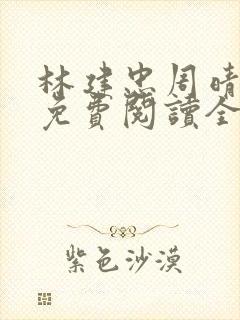 林建忠周晴
免費閱讀全
紫色沙漠